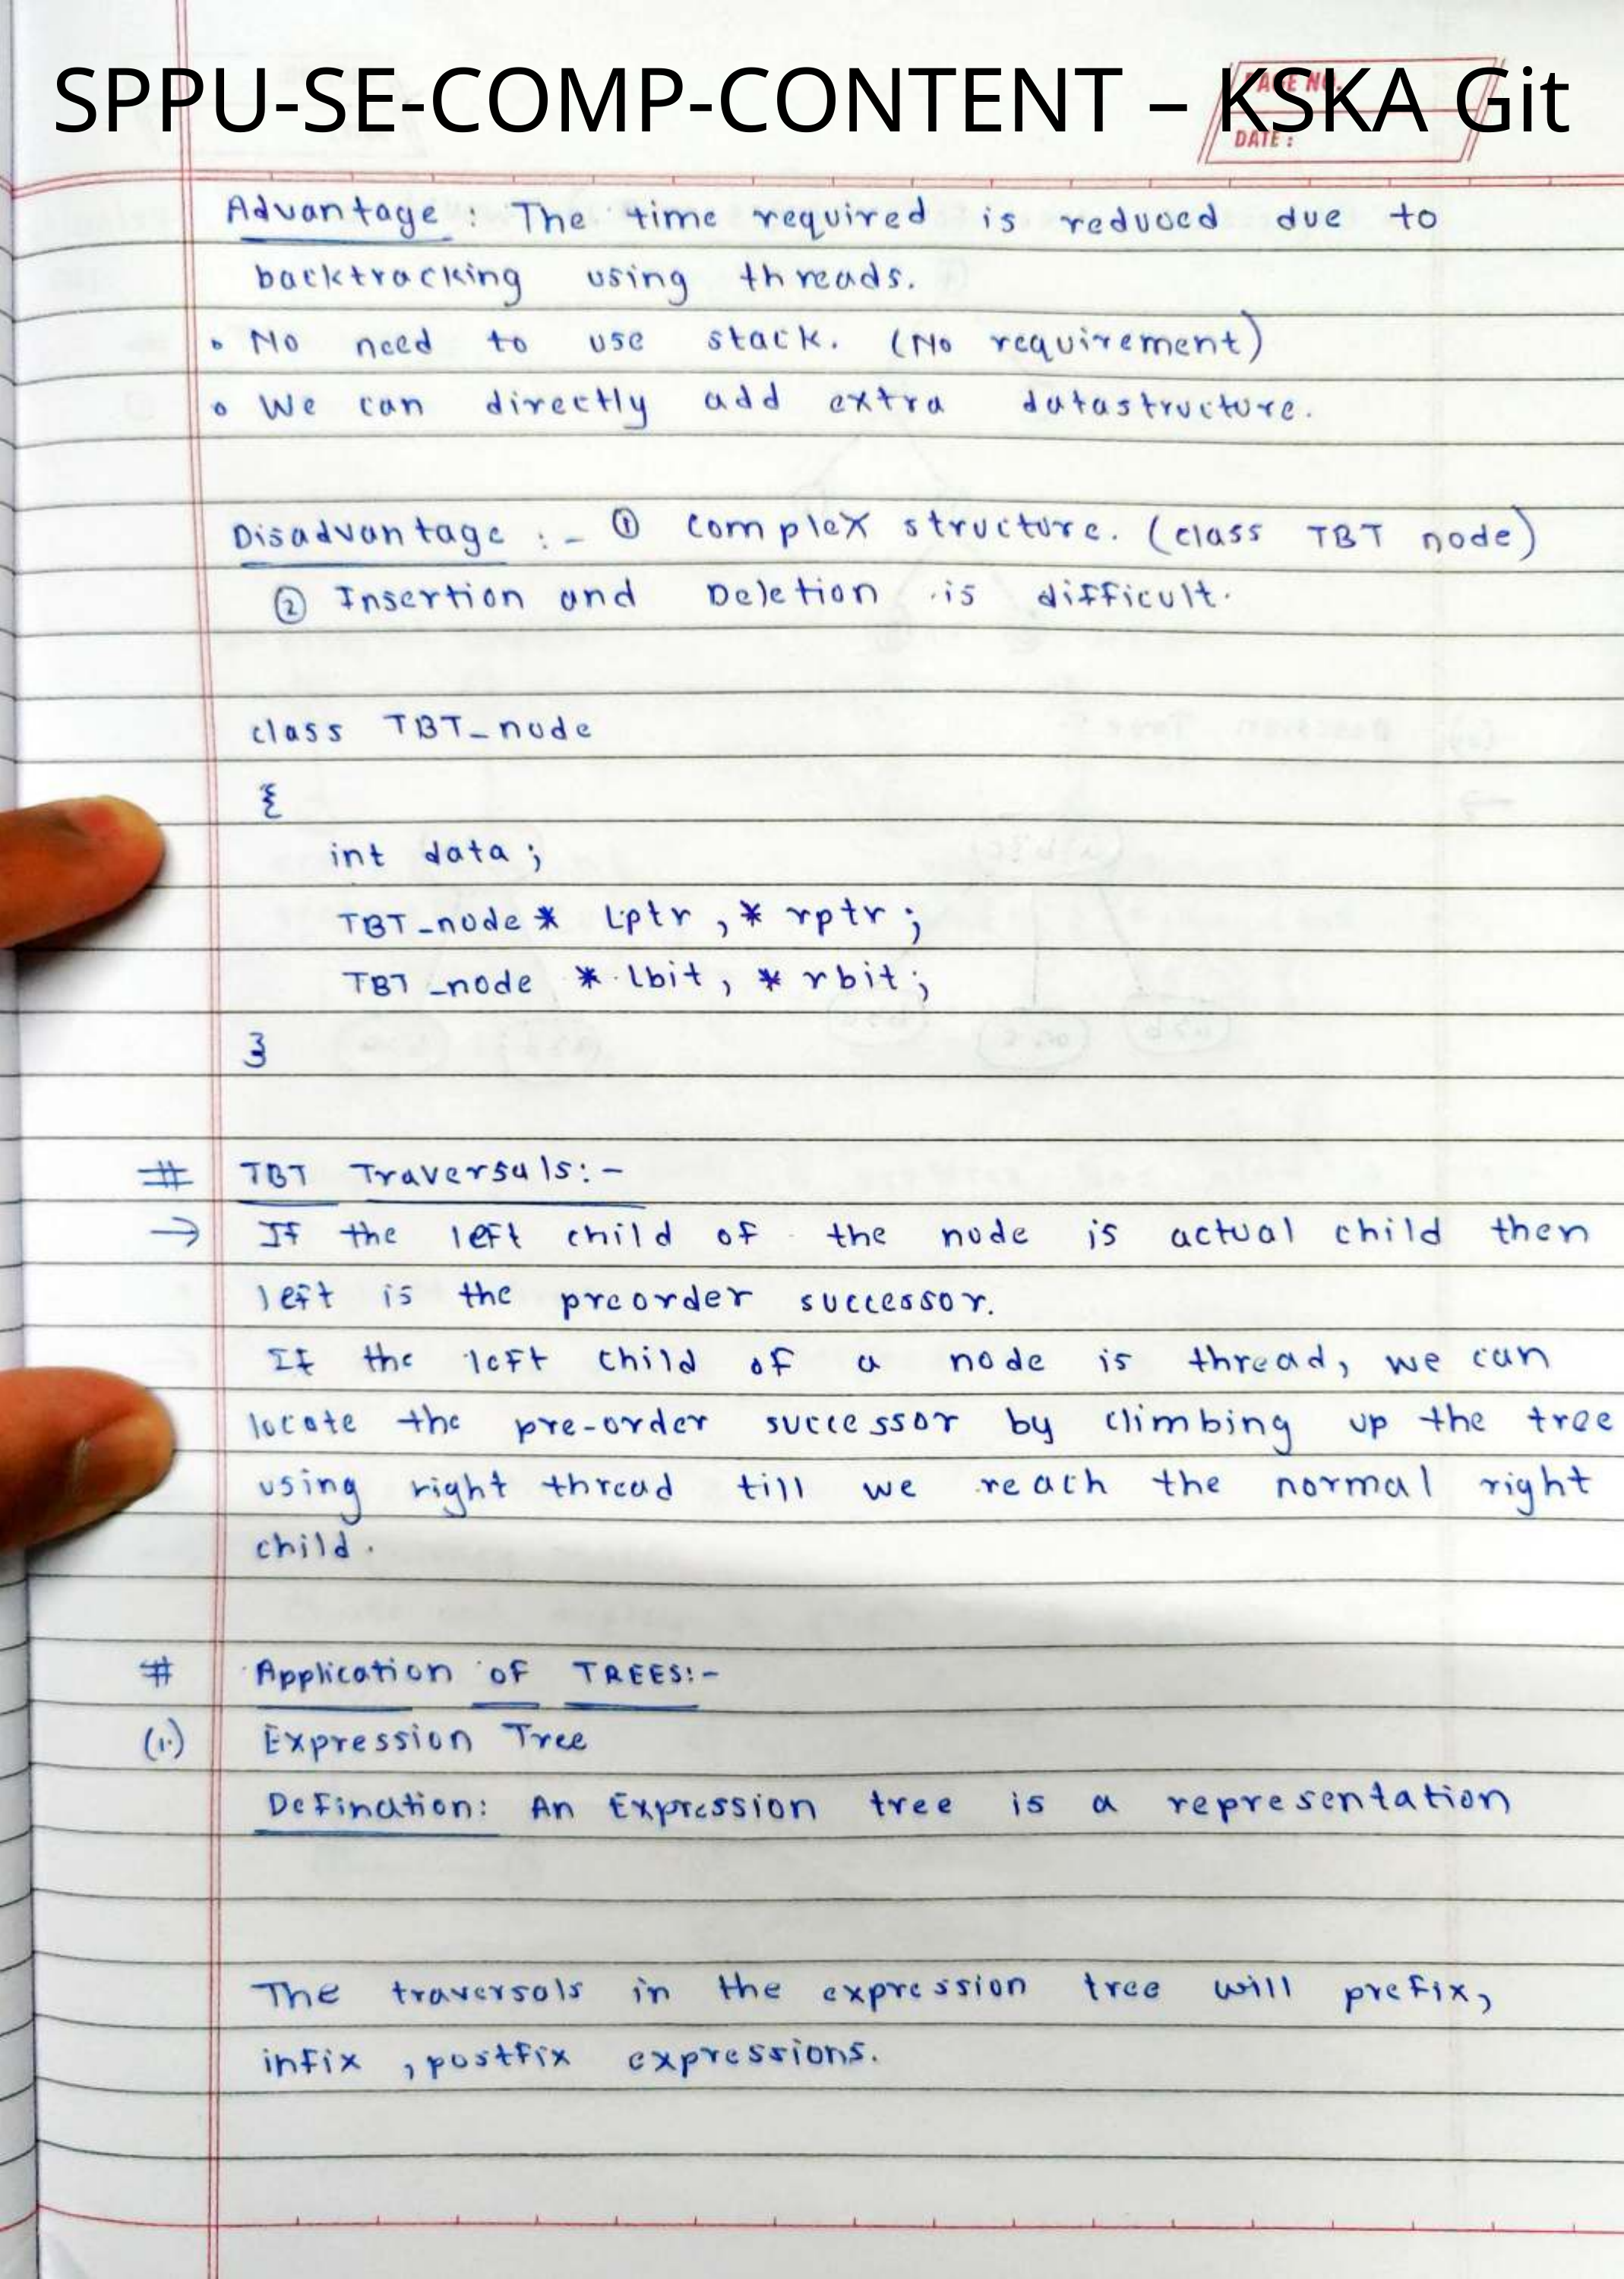 SPPU-SE-COMP-CONTENT – KSKA Git
PAGE NO.
DATE :
Advantage : The time required is reduced due to
backtracking using threads.
• No need to use stack. (No requirement)
• We can directly add extra datastructure.
Disadvantage :- ① complex structure. (class TBT node)
② Insertion and Deletion is difficult.
class TBT_node
{
int data ;
TBT_node * Lptr , * rptr ;
TBT_node * lbit , * rbit ;
}
# TBT Traversals:-
→ If the left child of the node is actual child then
left is the preorder successor.
If the left child of a node is thread, we can
locate the pre-order successor by climbing up the tree
using right thread till we reach the normal right
child.
# Application OF TREES:-
(1.) Expression Tree
Defination: An Expression tree is a representation
The traversals in the expression tree will prefix,
infix , postfix expressions.